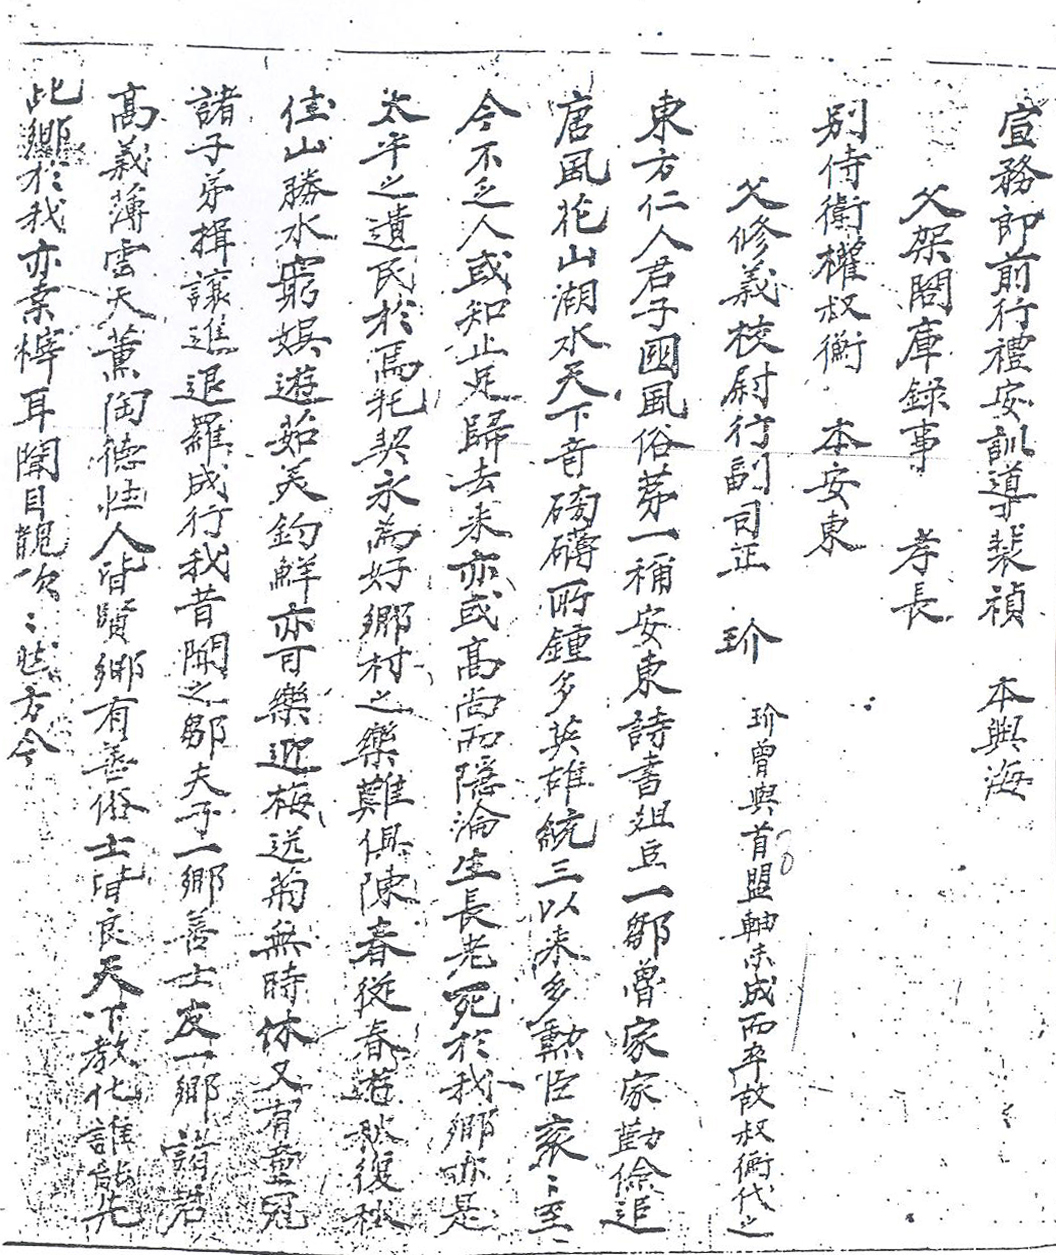 宣務郎前行禮安訓導裴禎 本興海
父架閣庫錄事 孝長
別侍衛權叔衡 本安東
父修義校尉行副司正 珎 珎曾與首盟軸未成而卒故叔衡代之
東方仁人君子國風俗苐一稱安東詩書俎豆一鄒魯家家勤儉追
唐風花山湖水天下音磅礴所鍾多英雄統三以來多勳臣衮〻至
今不乏人或知止足歸去来亦或高尚而隱淪生長老死於我鄉亦是
太平之遺民於焉托契永爲好鄉村之樂難俱陳春從春遊秋復秋
佳山勝水窮娛遊茹美釣鮮亦可樂迎梅送菊無時休又有童冠
諸子弟揖讓進退羅成行我昔聞之鄒夫子一鄉善士友一鄉諸君
高義薄雲天薰陶德性人皆賢鄉有善俗士皆良天下教化誰能先
此鄉於我亦桑梓耳聞目覩次〻 方今